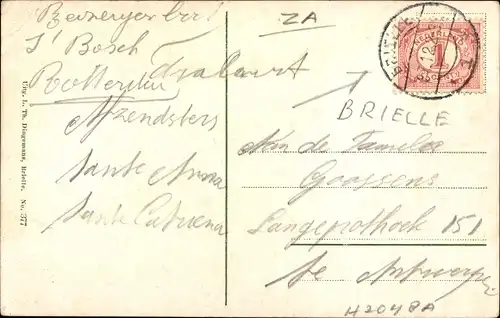 ZA
S' Bosch
Rotterdam
Afzendsters
Sante Anna
Sante Caterina
Uitg. L. Th. Dingemans, Brielle. No. 377
NEDERLAND
1
BRIELLE
Aan de Familie
Goossens
Langepothoek 151
te Antwerpen
H2048A